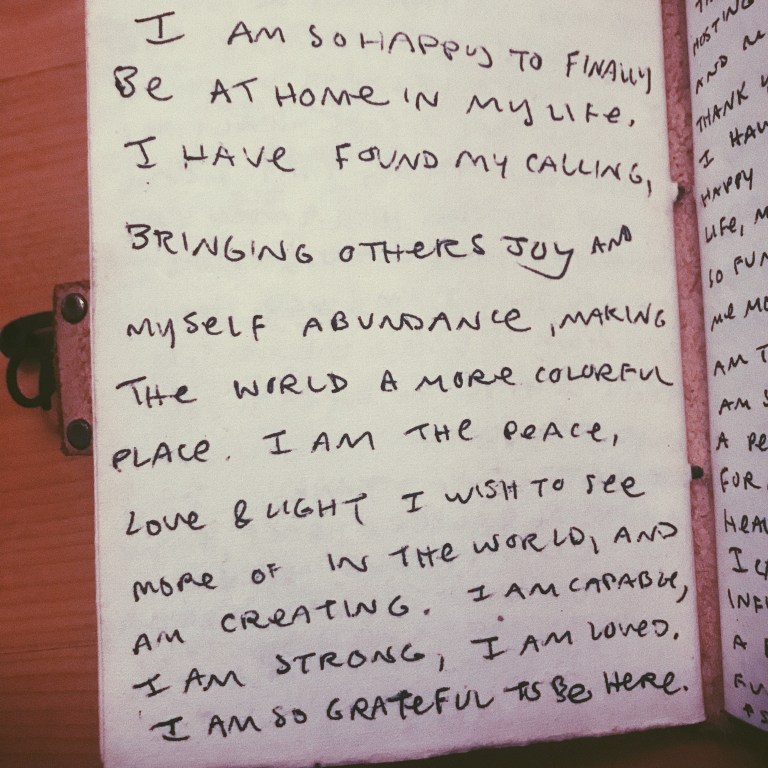 I AM SO HAPPY TO FINALLY
BE AT HOME IN MY LIFE.
I HAVE FOUND MY CALLING,
BRINGING OTHERS JOY AND
MYSELF ABUNDANCE, MAKING
THE WORLD A MORE COLORFUL
PLACE. I AM THE PEACE,
LOVE & LIGHT I WISH TO SEE
MORE OF IN THE WORLD, AND
AM CREATING. I AM CAPABLE,
I AM STRONG, I AM LOVED.
I AM SO GRATEFUL TO BE HERE.
HOSTING
AND
THANK
I HAV
HAPPY
LIFE, M
SO FUN
ME MO
AM T
AM S
A PE
FOR
HEAL
I
INF
A
FU